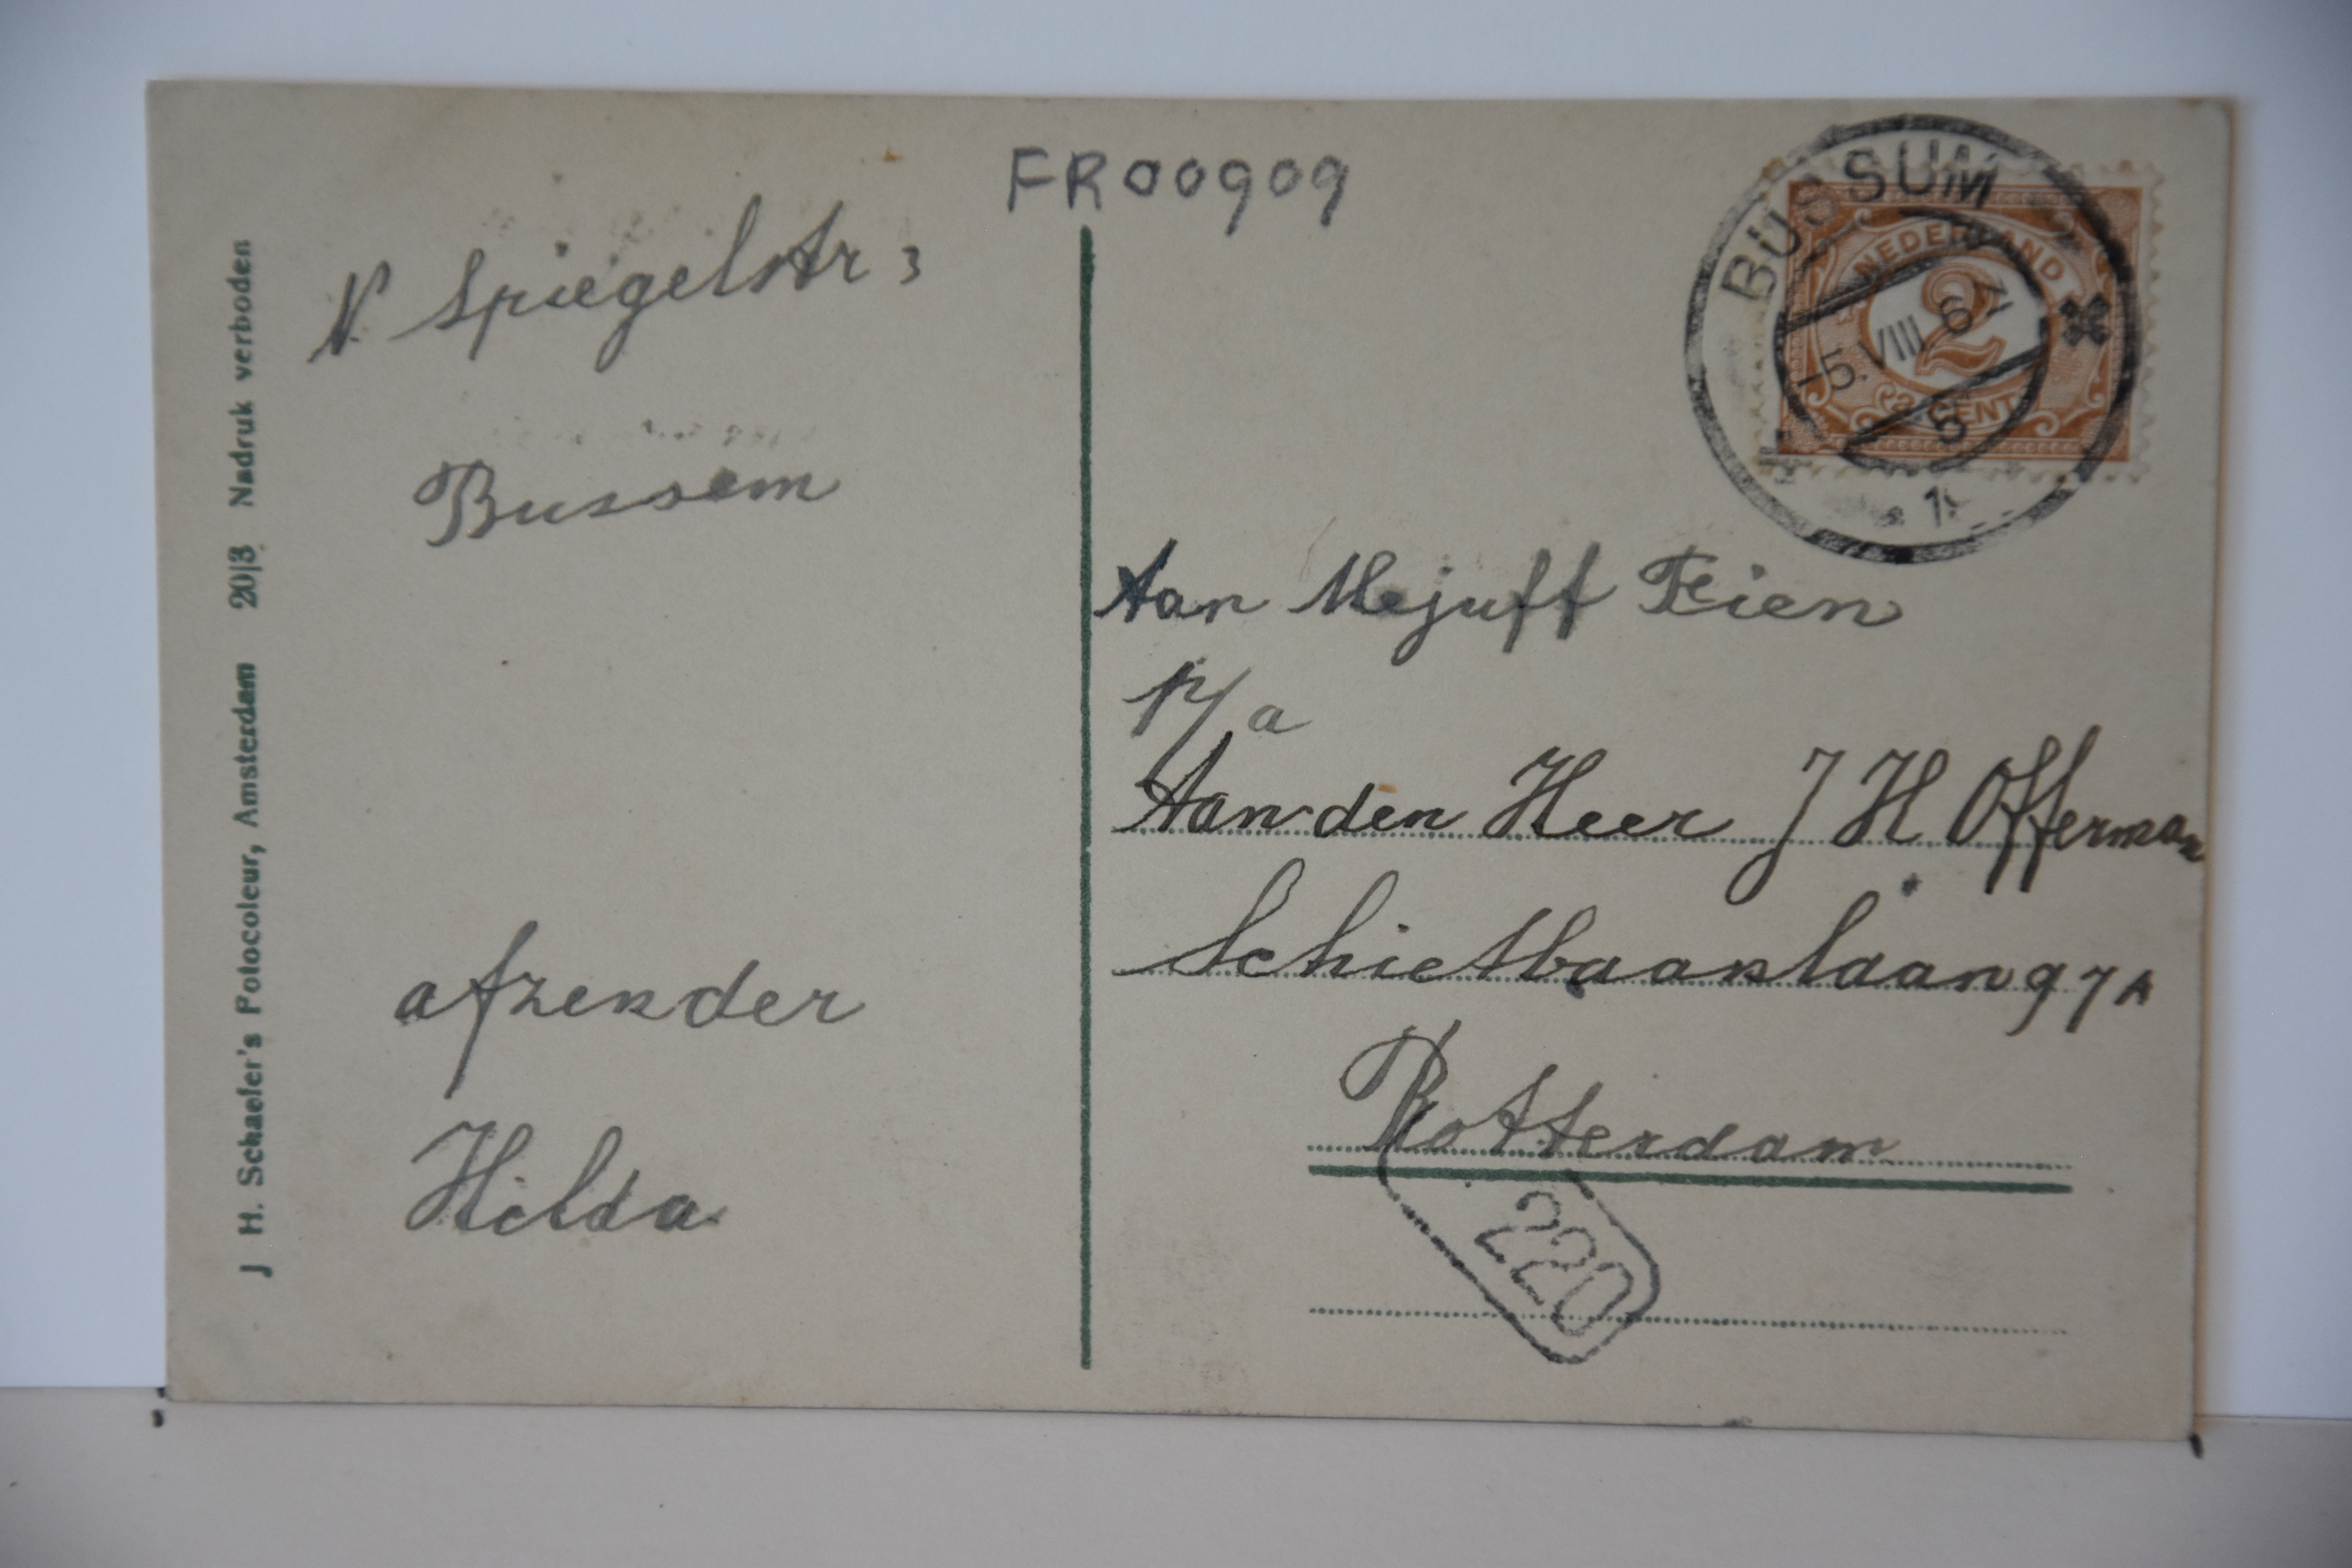 FR00909
N Spiegelstr 3
Bussem
afzender
Hilda
J H. Schaefer's Fotocoleur, Amsterdam 20|3 Nadruk verboden
BUSSUM
5.VIII 6
5
1
NEDERLAND
2
CENT
Aan Mejuff
p/a
Aan den Heer J H Offerman
Schietbaanlaan 97A
Rotterdam
220